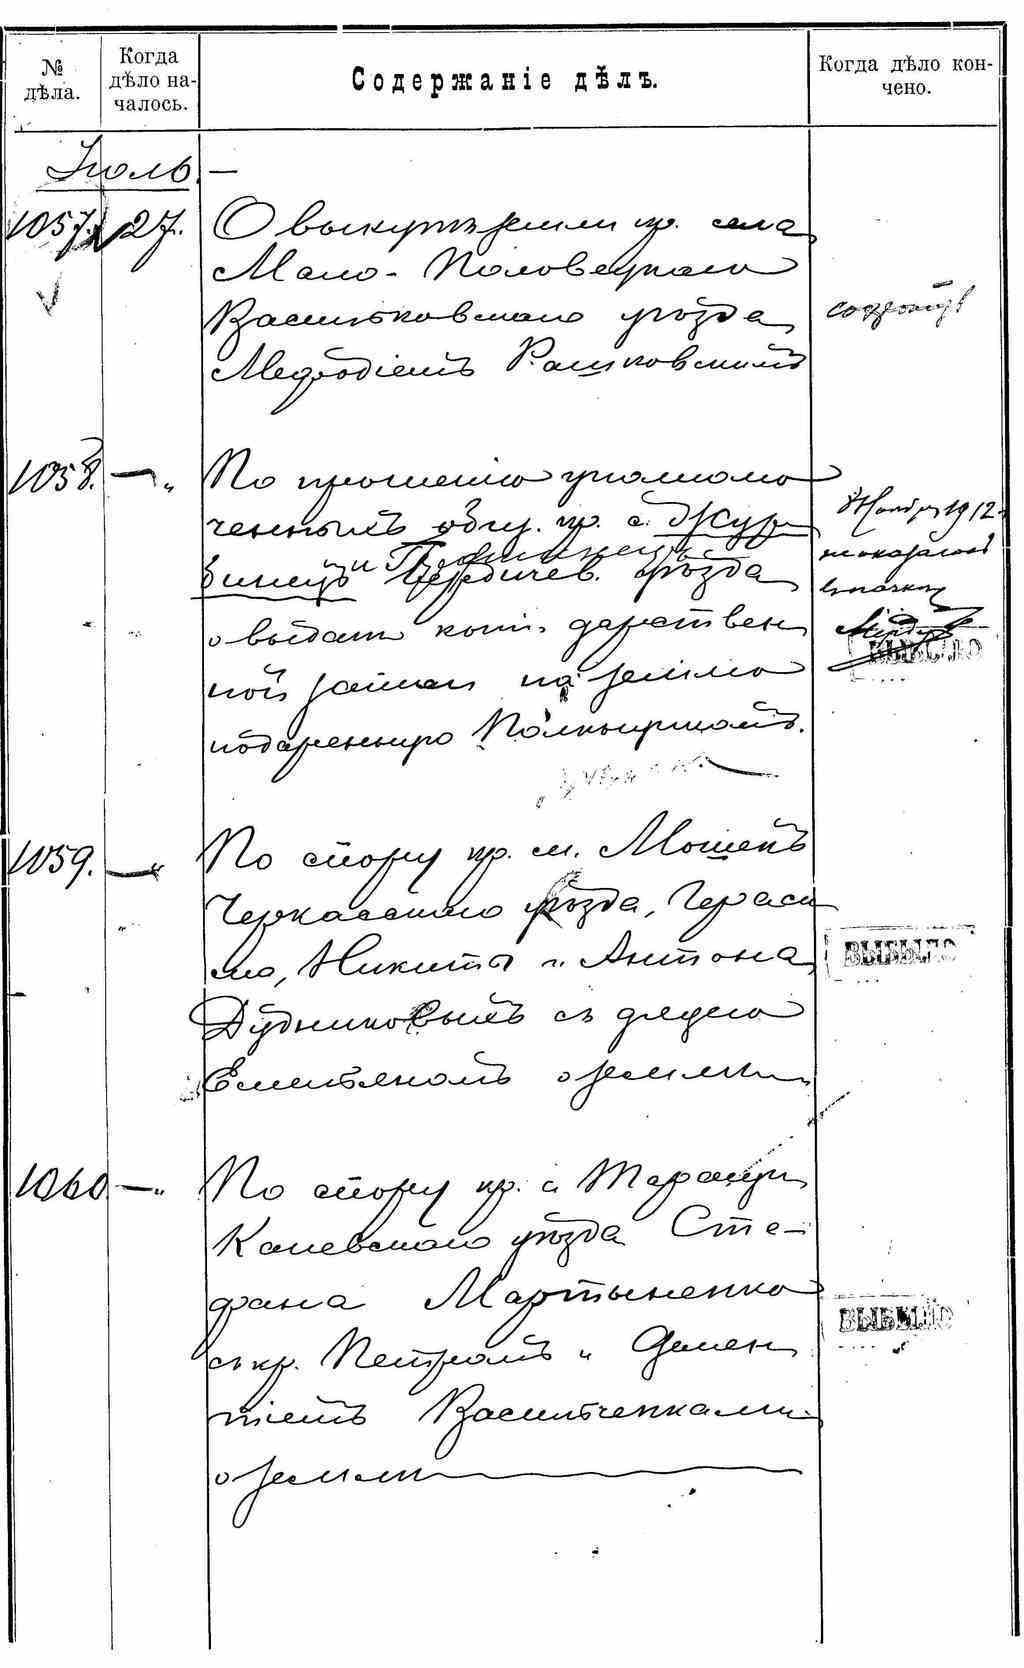 № дѣла.
Когда дѣло на-
чалось.
Содержаніе дѣлъ.
Когда дѣло кон-
чено.
Іюль. —
1057. 27. О выкупѣ земли кр. села
Мало-Половецкаго
Васильковскаго уѣзда
Мефодіемъ Рашковскимъ
1058. —„ По прошенію уполномо
ченныхъ общ. кр. с. Жур
бинецъ Бердичев. уѣзда
о выдачѣ коп. дарствен
ной записи на землю
подаренную
1912
показаній
ВЫБЫЛО
1059. —„ По спору кр. м. Мошенъ
Черкасскаго уѣзда, Гераси
ма, Никиты и Антона
Дудниковыхъ съ дядею
Емельяномъ о земли
ВЫБЫЛО
1060 —„ По спору кр. с. Таращи
Каневскаго уѣзда Сте-
фана Мартыненко
съ кр. Петромъ и Демен
тіемъ Васильченками
о земли
ВЫБЫЛО